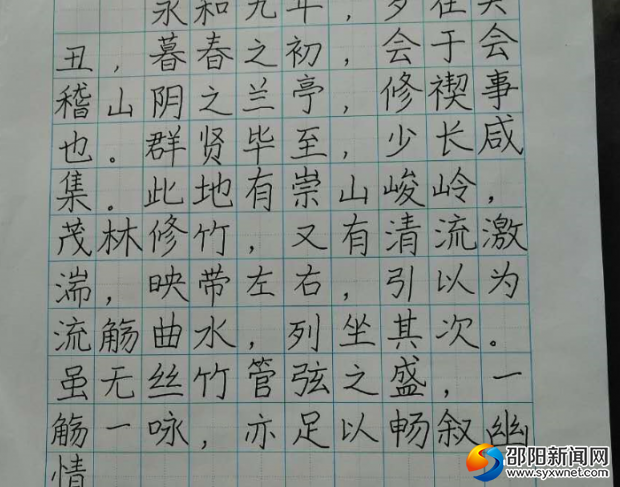 永和九年，岁在癸
丑，暮春之初，会于会
稽山阴之兰亭，修禊事
也。群贤毕至，少长咸
集。此地有崇山峻岭，
茂林修竹，又有清流激
湍，映带左右，引以为
流觞曲水，列坐其次。
虽无丝竹管弦之盛，一
觞一咏，亦足以畅叙幽
情
邵阳新闻网
www.syxwnet.com